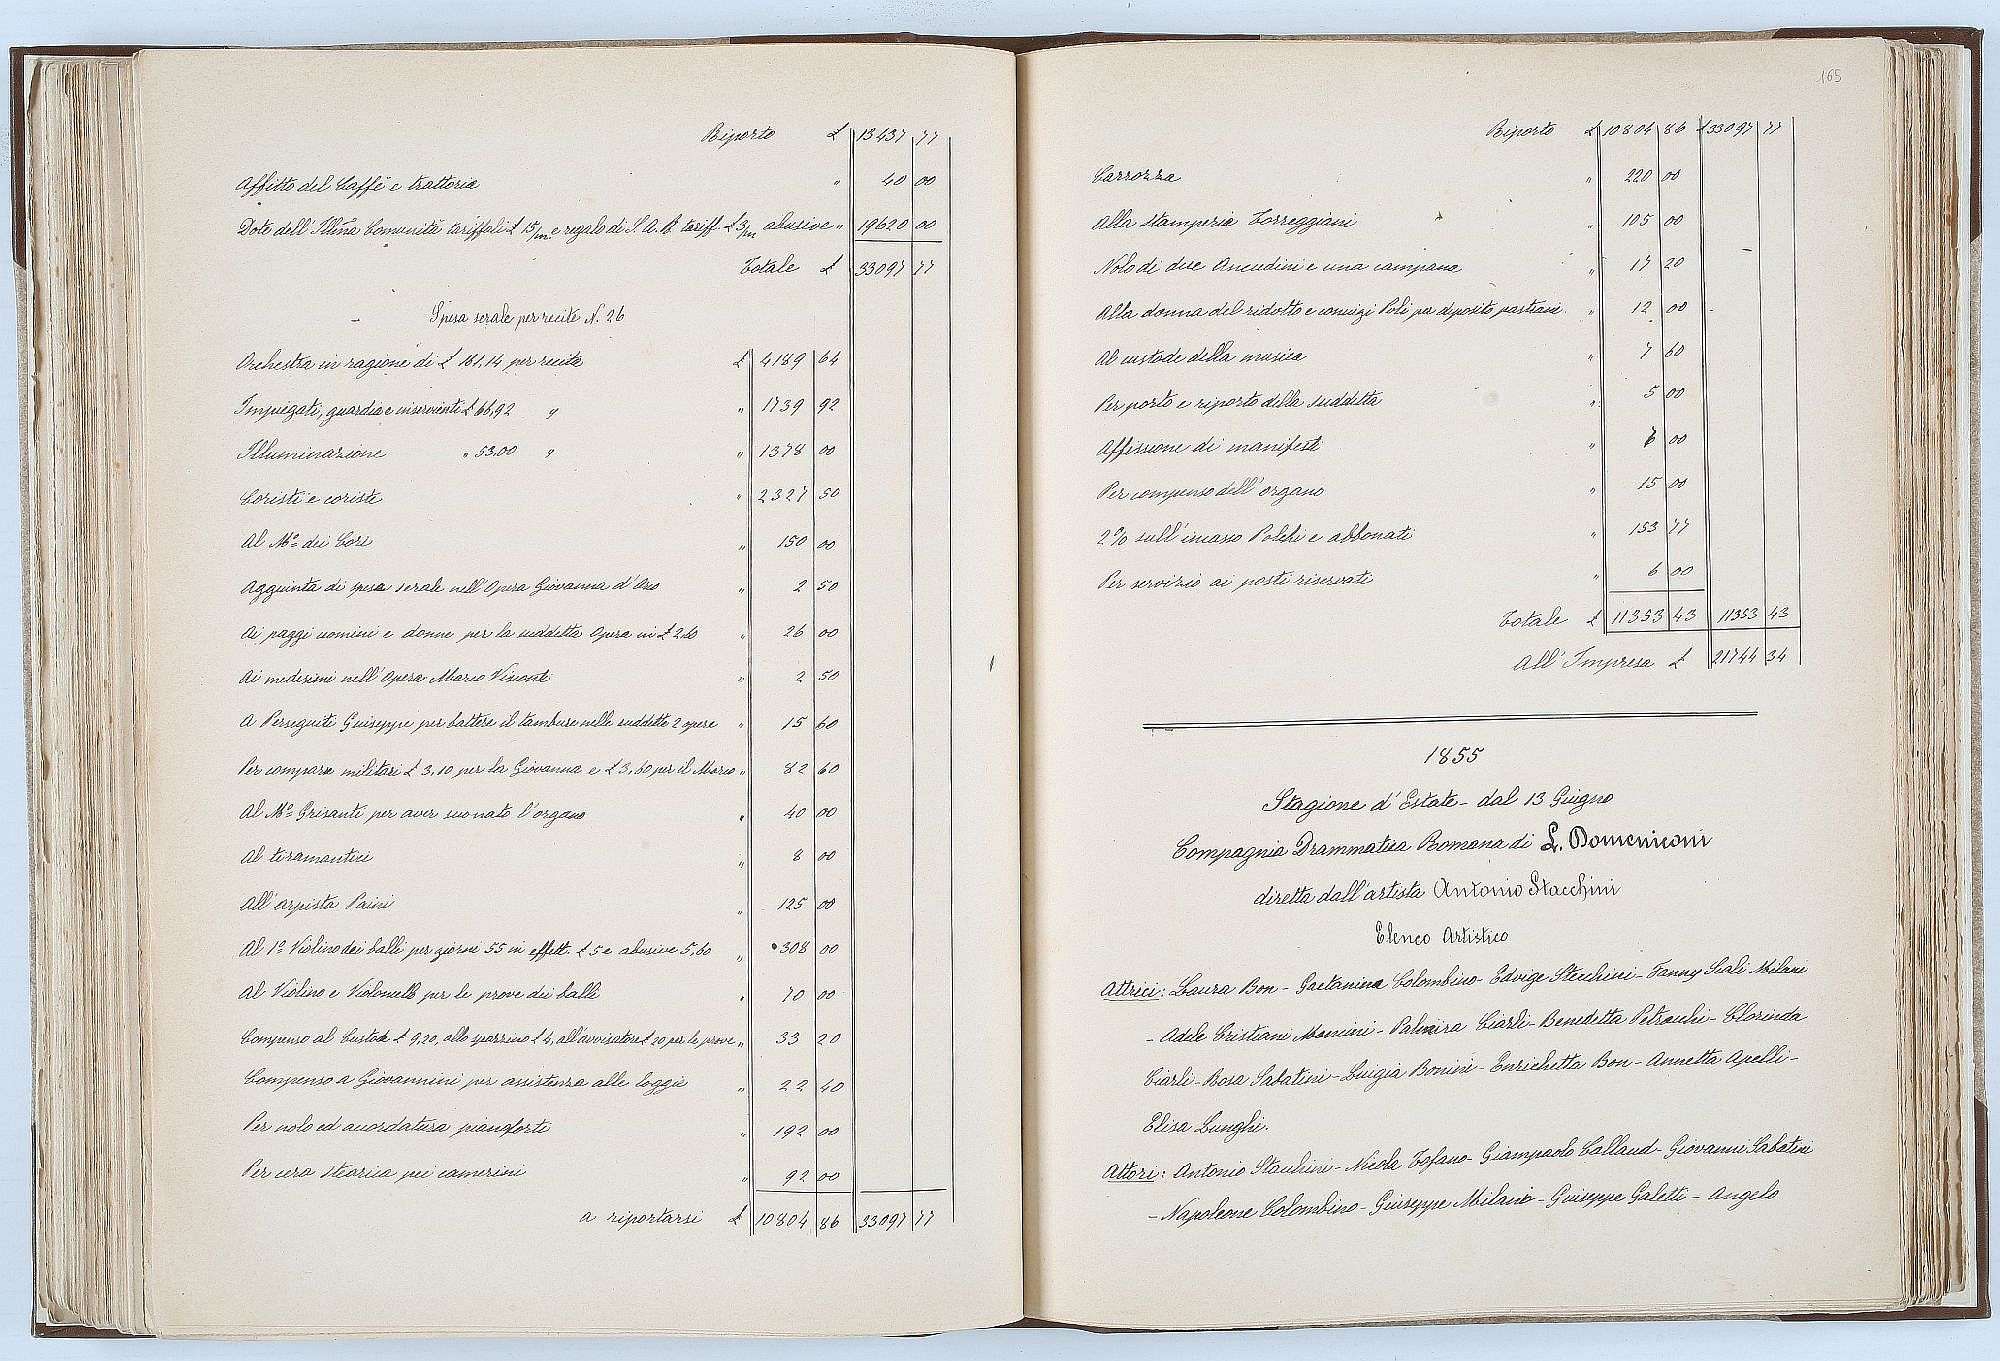 Riporto £ 13437 77
Affitto del Caffè e trattoria " 40 00
Dote dell' Illma Comunità tariffali £ 15/m e regalo di S.A.R. tariff. £ 3/m abusive " 19620 00
Totale £ 33097 77
Spesa serale per recite N. 26
Orchestra in ragione di £ 161,14 per recita £ 4189 64
Impiegati, guardia e inservienti £ 66,92 " " 1739 92
Illuminazione " 53.00 " " 1378 00
Coristi e coriste " 2327 50
Al Mo. dei Cori " 150 00
Aggiunta di spesa serale nell'Opera Giovanna d'Arco " 2 50
Ai paggi uomini e donne per la suddetta Opera in £ 2.60 " 26 00
Ai medesimi nell'Opera Marco Visconti " 2 50
A Perseguiti Giuseppe per battere il tamburo nelle suddette 2 opere " 15 60
Per comparse militari £ 3,10 per la Giovanna e £ 3,60 per il Marco " 82 60
Al Mo. Grisanti per aver suonato l'organo " 40 00
Al tiramantici " 8 00
All'arpista Paini " 125 00
Al 1o. Violino dei balli per giorni 55 in effett. £ 5 e abusive 5,60 " 308 00
Al Violino e Violoncello per le prove dei balli " 70 00
Compenso al Custode £ 9,20, allo spazzino £ 4, all'avvisatore £ 20 per le prove " 33 20
Compenso a Giovannini per assistenza alle loggie " 22 40
Per nolo ed accordatura pianoforti " 192 00
Per cera stearica pei camerini " 92 00
a riportarsi £ 10804 86 33097 77
165
Riporto £ 10804 86 £ 33097 77
Carrozza " 220 00
Alla Stamperia Torreggiani " 105 00
Nolo di due Ancudini e una campana " 17 20
Alla donna del ridotto e coniugi Poli per deposito pastrani " 12 00
Al custode della musica " 7 60
Per porto e riporto della suddetta " 5 00
Affissione di manifesti " 6 00
Per compenso dell'organo " 15 00
2% sull'incasso Palchi e abbonati " 153 77
Per servizio ai posti riservati " 6 00
Totale £ 11353 43 11353 43
All'Impresa £ 21744 34
1855
Stagione d'Estate - dal 13 Giugno
Compagnia Drammatica Romana di L. Domeniconi
diretta dall'artista Antonio Stacchini
Elenco Artistico
Attrici: Laura Bon - Gaetanina Colombino - Edvige Stacchini - Fanny Scali Milani
- Adele Cristiani Mancini - Palmira Ciarli - Benedetta Petracchi - Clorinda
Ciarli - Rosa Sabatini - Luigia Bonini - Enrichetta Bon - Annetta Apelli -
Elisa Lunghi.
Attori: Antonio Stacchini - Nicola Tofano - Giampaolo Calloud - Giovanni Sabatini
- Napoleone Colombino - Giuseppe Milani - Giuseppe Galetti - Angelo